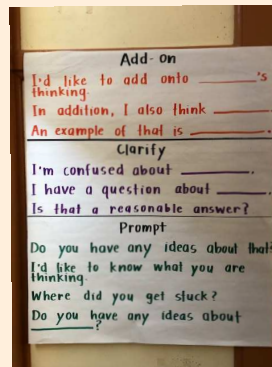 Add-on
I'd like to add onto ______'s
thinking.
In addition, I also think ______
An example of that is ______.
Clarify
I'm confused about ______.
I have a question about ______.
Is that a reasonable answer?
Prompt
Do you have any ideas about that?
I'd like to know what you are
thinking.
Where did you get stuck?
Do you have any ideas about
______?